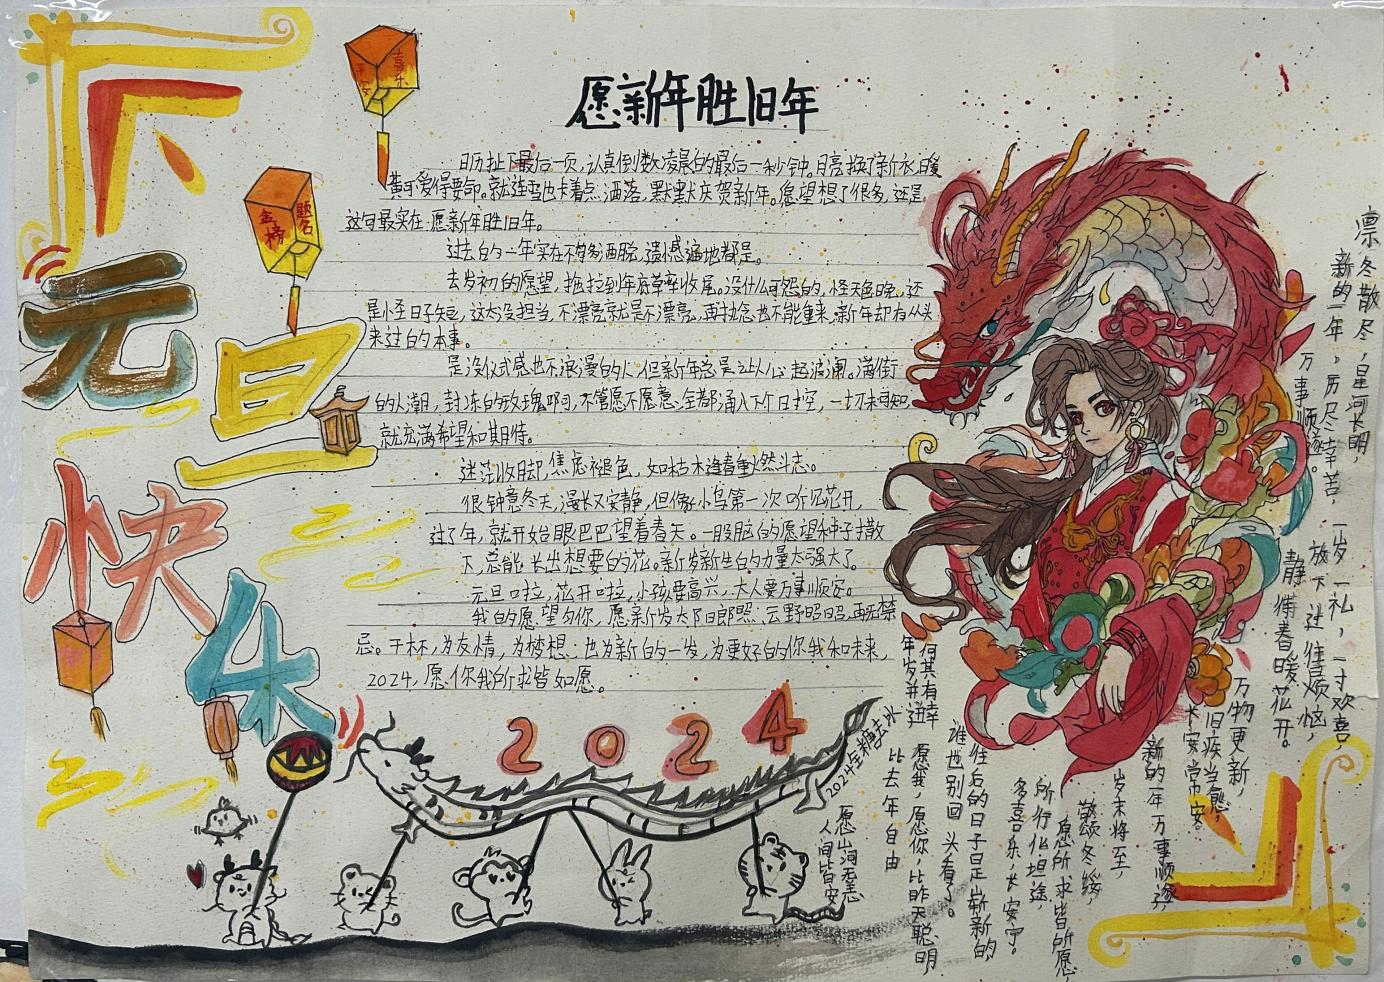 元旦快乐
平安
喜乐
金榜
题名
愿新年胜旧年
日历扯下最后一页，认真倒数凌晨的最后一秒钟。月亮换了新衣，日暖
黄可爱得要命。就连雪也卡着点洒落，默默庆贺新年。愿望想了很多，还是
这句最实在：愿新年胜旧年。
过去的一年实在不够多洒脱，遗憾遍地都是。
去岁初的愿望，拖拉到年底草率收尾。没什么可怨的，怪天色晚，还
是小怪日子短，这太没担当，不漂亮就是不漂亮，再执念也不能重来，新年却有从头
来过的本事。
是没仪式感也不浪漫的人，但新年总是让人心起波澜。满街
的人潮，封冻的玫瑰啊，不管愿不愿意，全都涌入下个日空，一切未可知，
就充满希望和期待。
迷茫收脚，焦虑褪色，如枯木逢春重燃斗志。
很钟意冬天，漫长又安静，但像小鸟第一次听见花开，
过了年，就开始眼巴巴望着春天。一股脑的愿望种子撒
下，总能长出想要的花。新岁新生的力量太强大了。
元旦啦，花开啦，小孩要高兴，大人要万事顺安。
我的愿望为你，愿新岁太阳郎照，云野昭昭，再无禁
忌。干杯，为友情，为梦想；也为新的一岁，为更好的你我和未来，
2024，愿你我所求皆如愿。
2024
凛冬散尽，星河长明，
新的一年，万事顺遂。
历尽辛苦，
一岁一礼，一寸欢喜，
放下过往烦恼，
静候春暖花开。
万物更新，
旧疾当愈，
长安常安。
新的一年万事顺遂，
岁末将至，
敬颂冬绥，
愿所求皆所愿，
所行化坦途，
多喜乐，长安宁。
往后的日子是崭新的
谁也别回头看了。
何其有幸
年岁并进
愿我，愿你，比昨天聪明
比去年自由
愿山河无恙
人间皆安